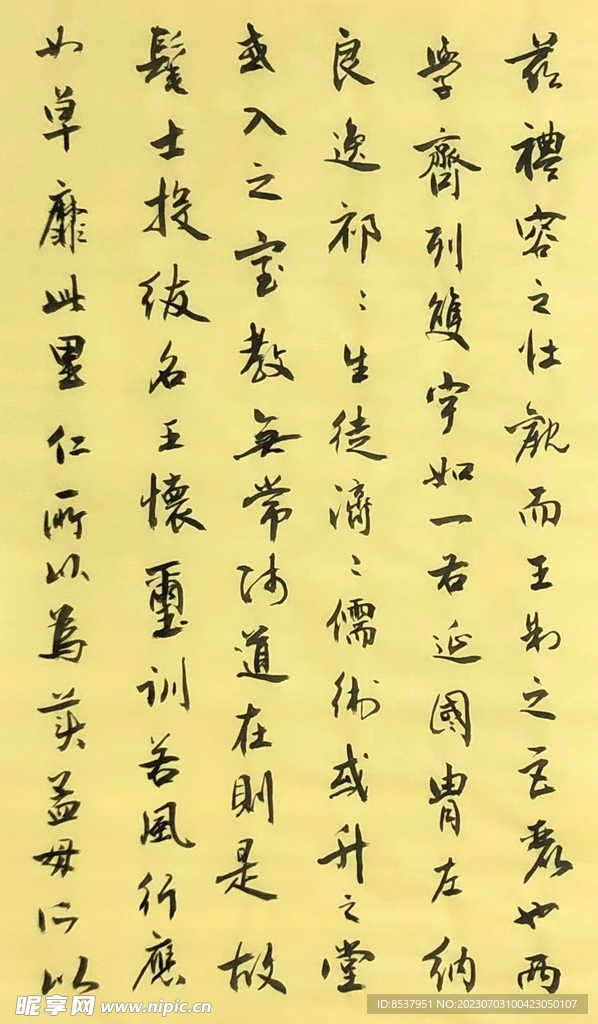 茲禮容之壯觀而王制之巨麗也兩
學齊列雙宇如一右延國胄左納
良逸祁〻生徒濟〻儒術或升之堂
或入之室教無常師道在則是故
髦士投紱名王懷璽訓若風行應
如草靡此里仁所以為美孟母所以
昵享网 www.nipic.cn
ID:8537951 NO:20230703100423050107